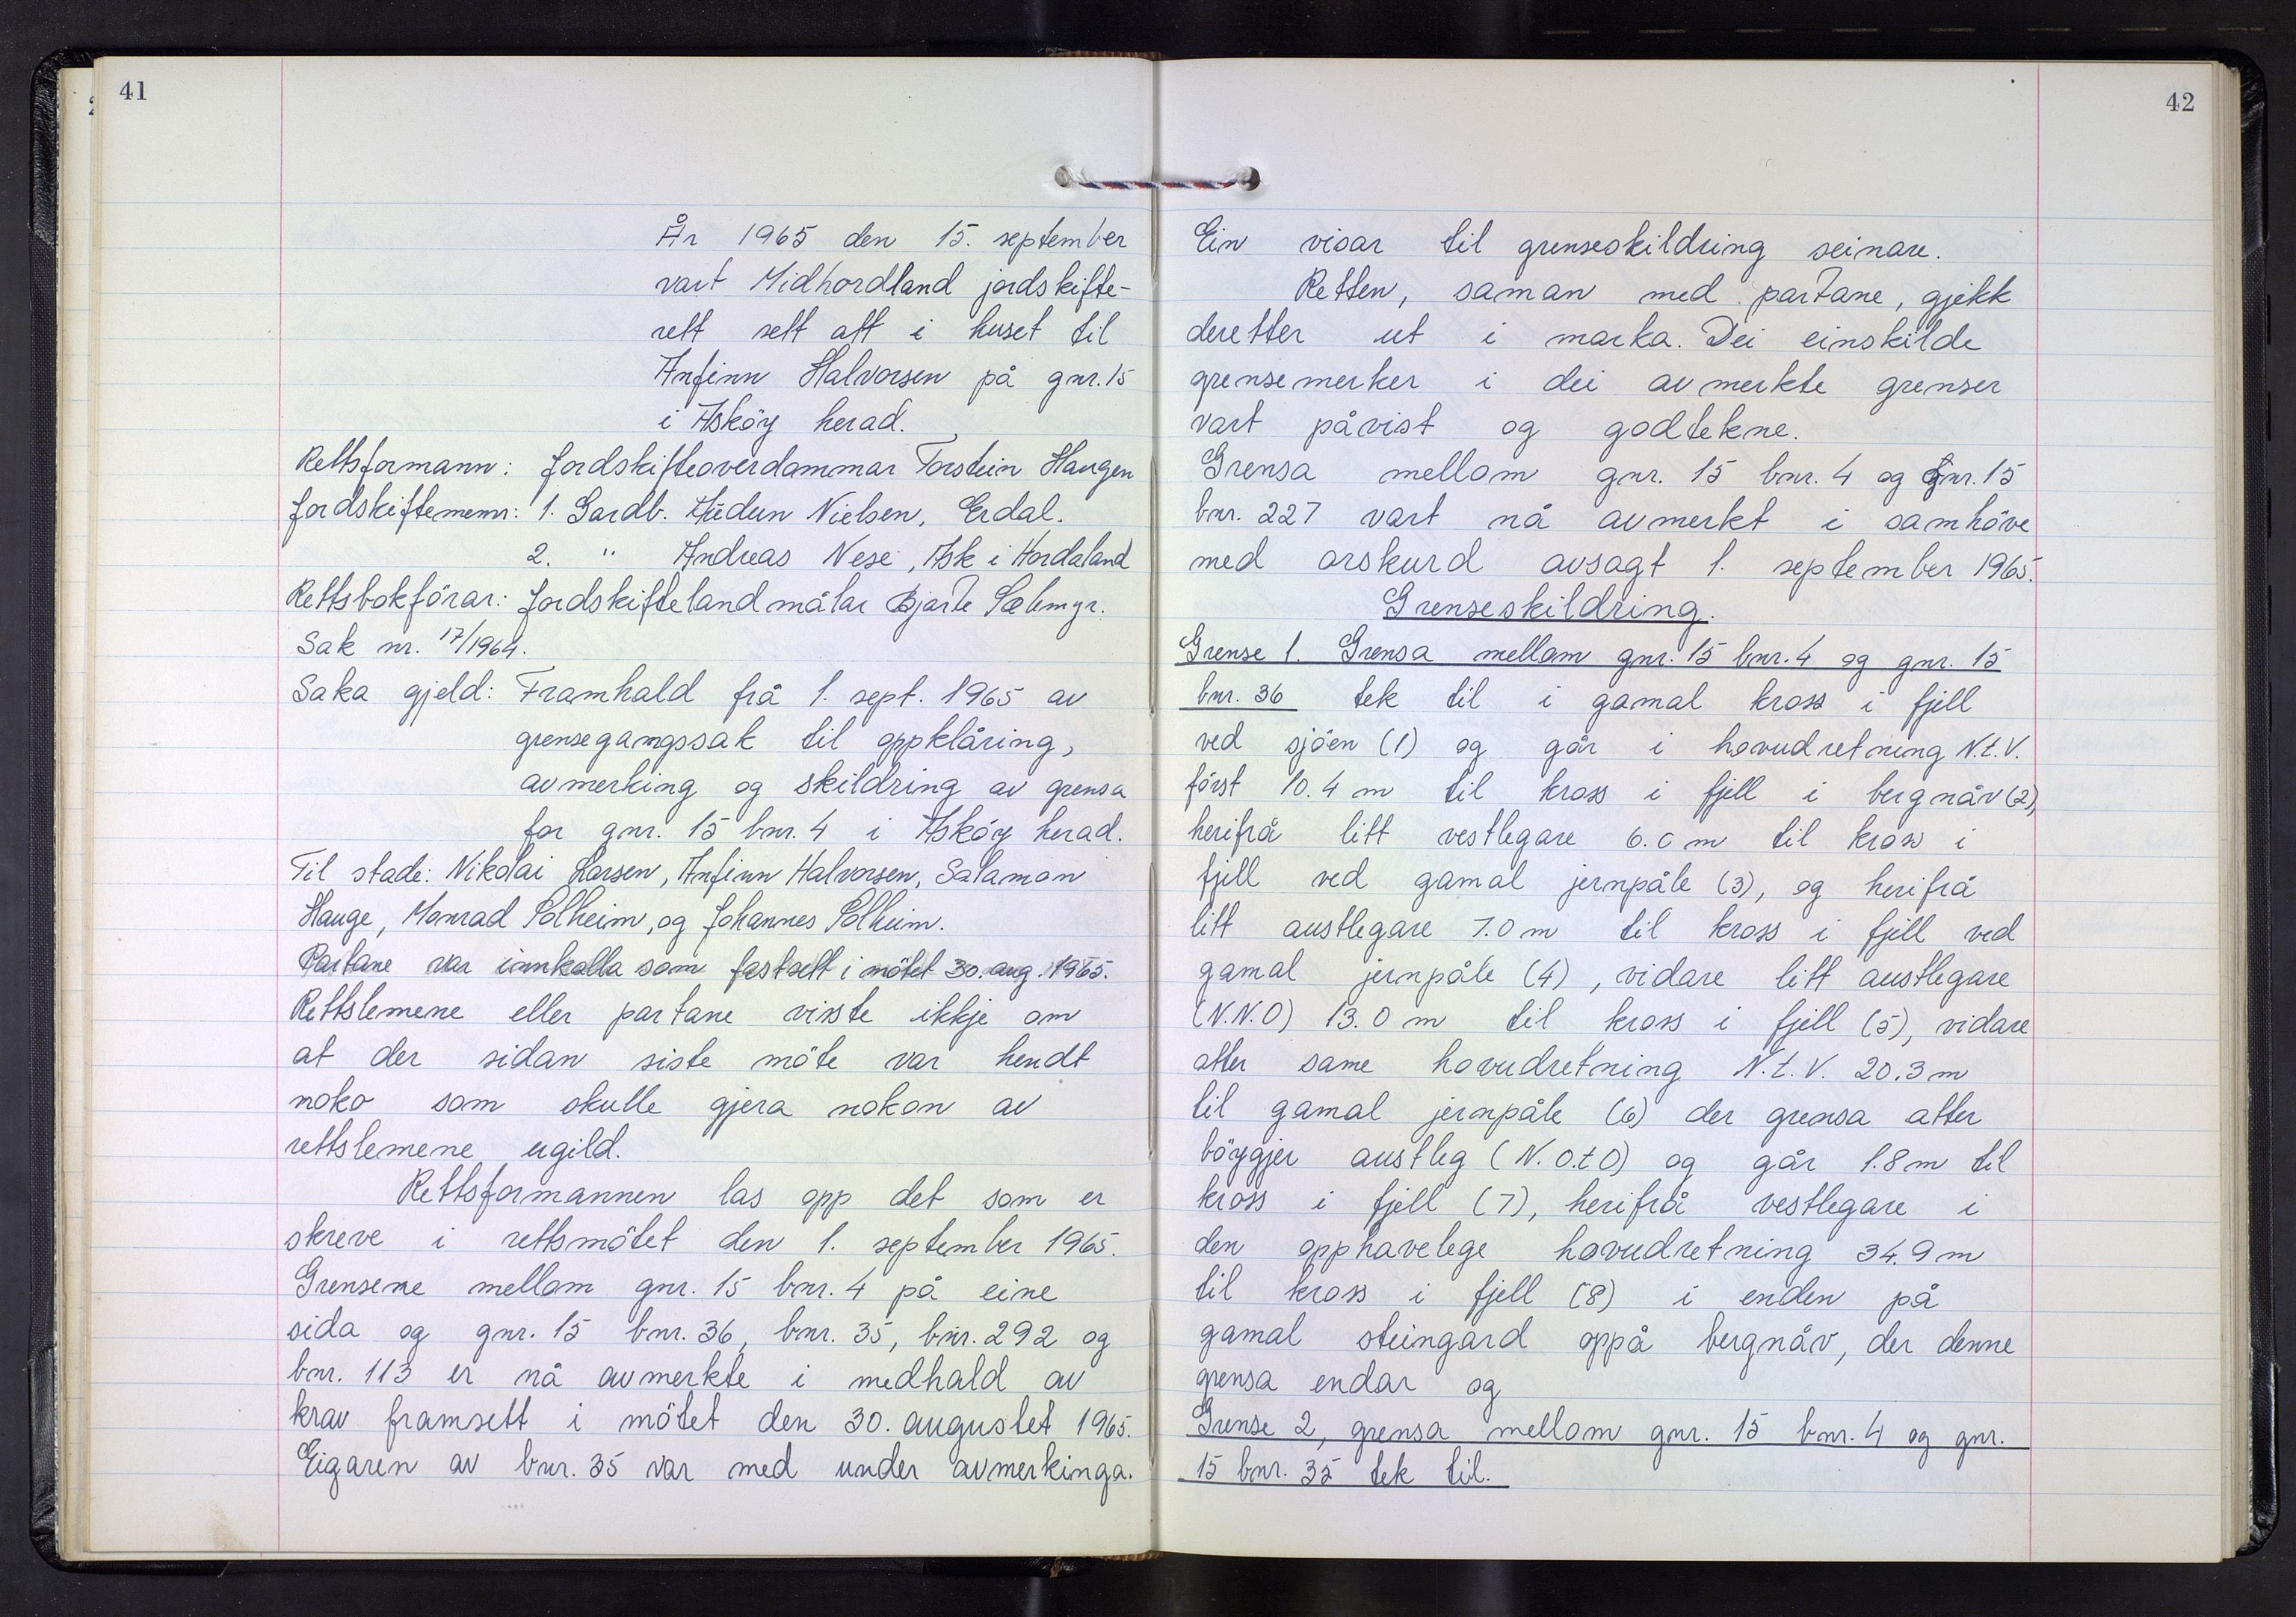 41
År 1965 den 15. september
vart Midhordland jordskifte-
rett sett att i huset til
Anfinn Halvorsen på gnr. 15
i Asköy herad.
Rettsformann: Jordskifteoverdommar Torstein Haugen
Jordskiftemenn: 1. Gardb. Audun Nielsen, Erdal.
2. " Andreas Nese, Ask i Hordaland
Rettsbokförar: Jordskiftelandmålar Bjarte Sælemyr.
Sak nr. 17/1964.
Saka gjeld: Framhald frå 1. sept. 1965 av
grensegangssak til oppklåring,
avmerking og skildring av grensa
for gnr. 15 bnr. 4 i Asköy herad.
Til stade: Nikolai Larsen, Anfinn Halvorsen, Salamon
Hauge, Monrad Solheim, og Johannes Solheim.
Partane var innkalla som fastsett i mötet 30. aug. 1965.
Rettslemene eller partane visste ikkje om
at der sidan siste möte var hendt
noko som skulle gjera nokon av
rettslemene ugild.
Rettsformannen las opp det som er
skreve i rettsmötet den 1. september 1965.
Grensene mellom gnr. 15 bnr. 4 på eine
sida og gnr. 15 bnr. 36, bnr. 35, bnr. 292 og
bnr. 113 er nå avmerkte i medhald av
krav framsett i mötet den 30. augustet 1965.
Eigaren av bnr. 35 var med under avmerkinga.
42
Ein visar til grenseskildring seinare.
Retten, saman med partane, gjekk
deretter ut i marka. Dei einskilde
grensemerker i dei avmerkte grenser
vart påvist og godtekne.
Grensa mellom gnr. 15 bnr. 4 og gnr. 15
bnr. 227 vart nå avmerkt i samhöve
med orskurd avsagt 1. september 1965.
Grenseskildring.
Grense 1. Grensa mellom gnr. 15 bnr. 4 og gnr. 15
bnr. 36 tek til i gamal kross i fjell
ved sjöen (1) og går i hovudretning N.t.V.
först 10.4 m til kross i fjell i bergnåv (2),
herifrå litt vestlegare 6.0 m til kross i
fjell ved gamal jernpåle (3), og herifrå
litt austlegare 7.0 m til kross i fjell ved
gamal jernpåle (4), vidare litt austlegare
(N.N.O) 13.0 m til kross i fjell (5), vidare
atter same hovudretning N.t.V. 20.3 m
til gamal jernpåle (6) der grensa atter
böygjer austleg (N.O.t.O) og går 1.8 m til
kross i fjell (7), herifrå vestlegare i
den opphavelege hovudretning 34.9 m
til kross i fjell (8) i enden på
gamal steingard oppå bergnåv, der denne
grensa endar og
Grense 2, grensa mellom gnr. 15 bnr. 4 og gnr.
15 bnr. 35 tek til.